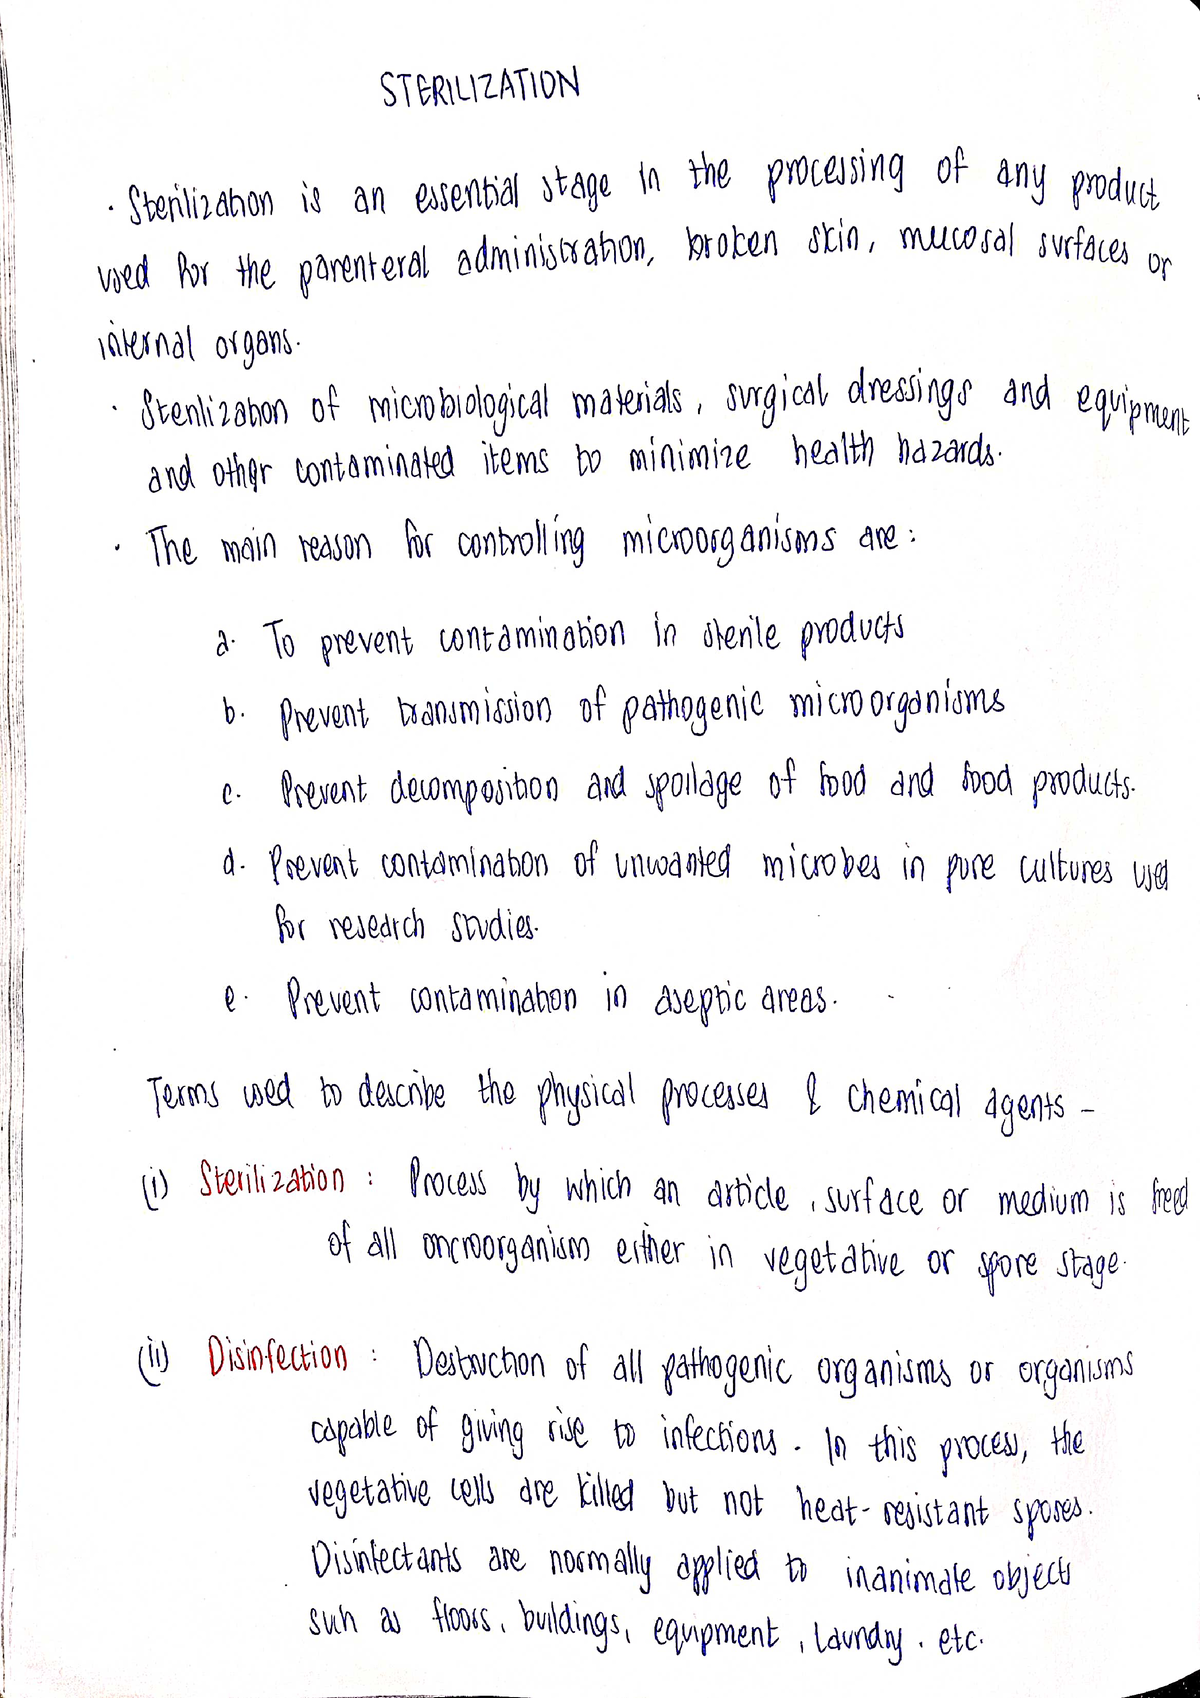 STERILIZATION
· Sterilization is an essential stage in the processing of any product
used for the parenteral administration, broken skin, mucosal surfaces or
internal organs.
· Sterilization of microbiological materials, surgical dressings and equipment
and other contaminated items to minimize health hazards.
· The main reason for controlling microorganisms are :
a. To prevent contamination in sterile products
b. Prevent transmission of pathogenic microorganisms
c. Prevent decomposition and spoilage of food and food products.
d. Prevent contamination of unwanted microbes in pure cultures used
for research studies.
e. Prevent contamination in aseptic areas.
Terms used to describe the physical processes & chemical agents -
(i) Sterilization : Process by which an article, surface or medium is freed
of all microorganism either in vegetative or spore stage.
(ii) Disinfection : Destruction of all pathogenic organisms or organisms
capable of giving rise to infections. In this process, the
vegetative cells are killed but not heat-resistant spores.
Disinfectants are normally applied to inanimate objects
such as floors, buildings, equipment, laundry. etc.